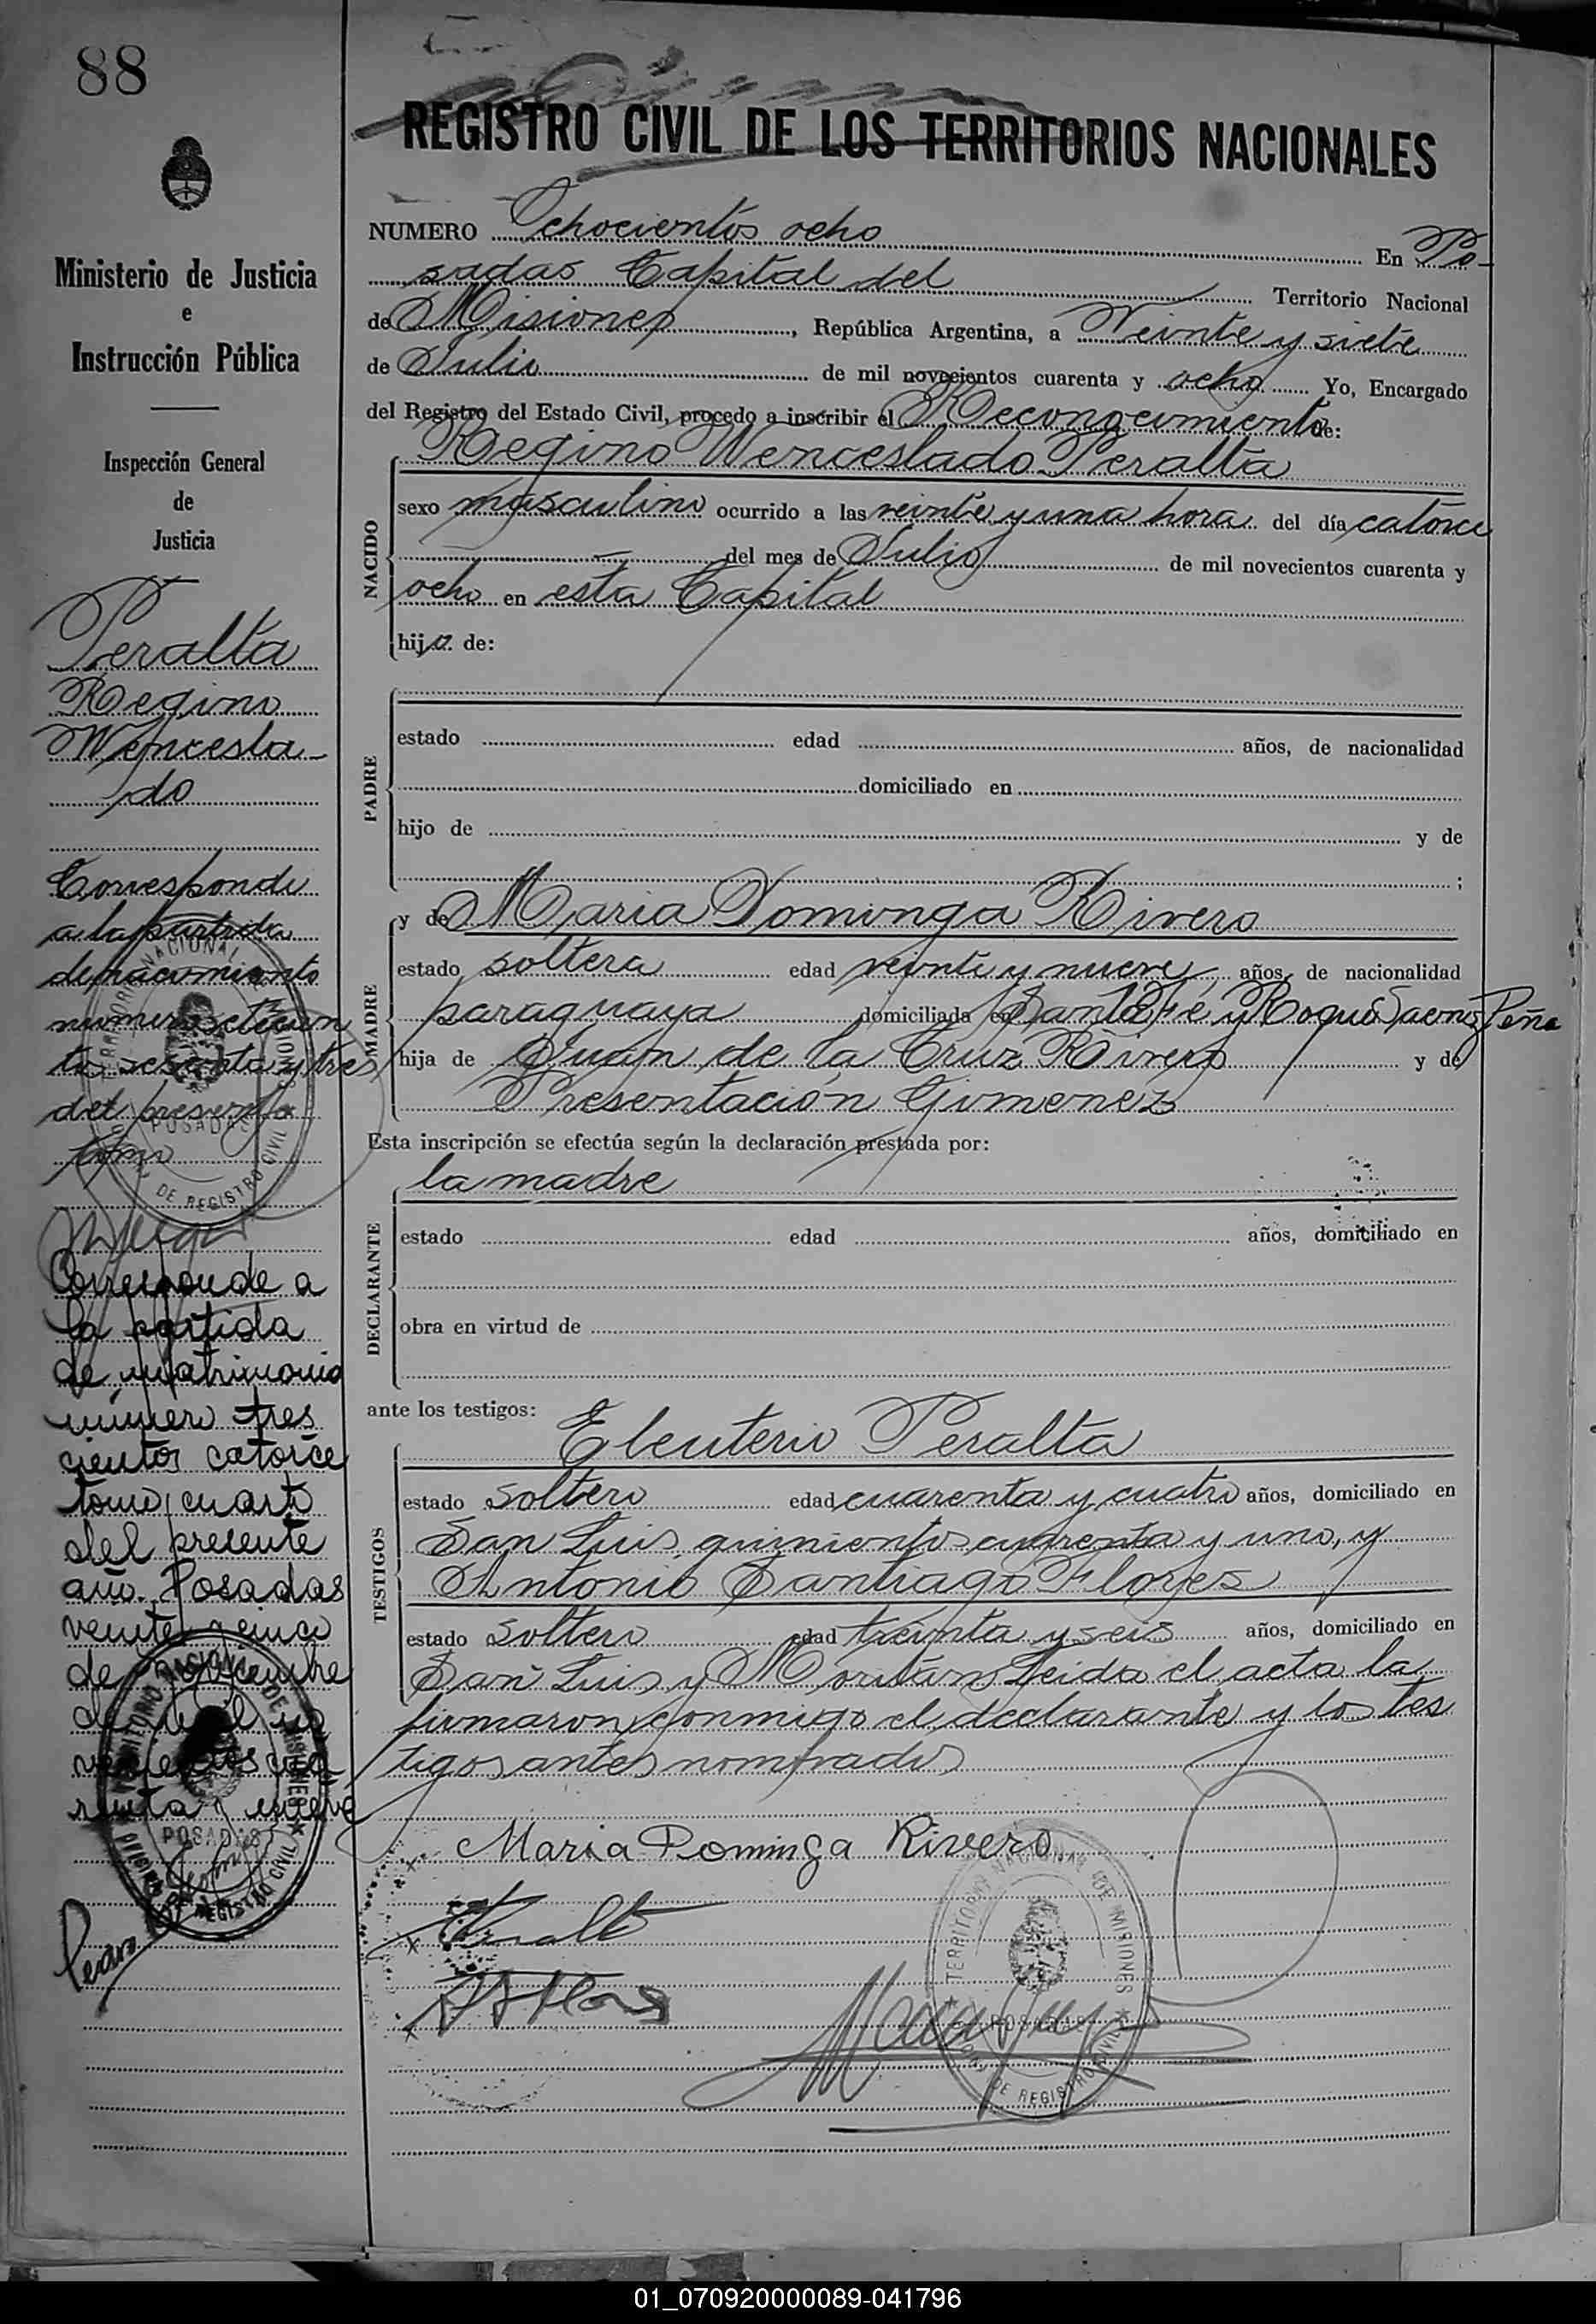 88
REGISTRO CIVIL DE LOS TERRITORIOS NACIONALES
Ministerio de Justicia
e
Instrucción Pública
Inspección General
de
Justicia
Peralta
Regino
Wencesla-
do
Corresponde
a la partida
de nacimiento
numero setecien
tos sesenta y tres
del presente
tomo
Corresponde a
la partida
de matrimonio
número tres
cientos catorce
tomo cuarto
del presente
año. Posadas
veinte y cinco
de noviembre
de mil no
vecientos cua-
renta y nueve
NUMERO Ochocientos ocho En Po-
sadas Capital del Territorio Nacional
de Misiones, República Argentina, a Veinte y siete
de Julio de mil novecientos cuarenta y ocho Yo, Encargado
del Registro del Estado Civil, procedo a inscribir el Reconocimiento de:
NACIDO
Regino Wenceslado Peralta
sexo masculino ocurrido a las veinte y una hora del día catorce
del mes de Julio de mil novecientos cuarenta y
ocho en esta Capital
hijo de:
PADRE
estado edad años, de nacionalidad
domiciliado en
hijo de y de
;
MADRE
y de Maria Dominga Rivero
estado soltera edad veinte y nueve años, de nacionalidad
paraguaya domiciliada en Santa Fe y Roque Saenz Peña
hija de Juan de la Cruz Rivero y de
Presentación Gimenez
Esta inscripción se efectúa según la declaración prestada por:
DECLARANTE
la madre
estado edad años, domiciliado en
obra en virtud de
ante los testigos:
TESTIGOS
Eleuterio Peralta
estado soltero edad cuarenta y cuatro años, domiciliado en
San Luis quinientos cuarenta y uno, y
Antonio Santiago Flores
estado soltero edad treinta y seis años, domiciliado en
San Luis y Moritán Leida el acta la
firmaron conmigo el declarante y los tes
tigos antes nombrados
Maria Dominga Rivero
TERRITORIO NACIONAL DE MISIONES
POSADAS
DE REGISTRO CIVIL
01_070920000089-041796